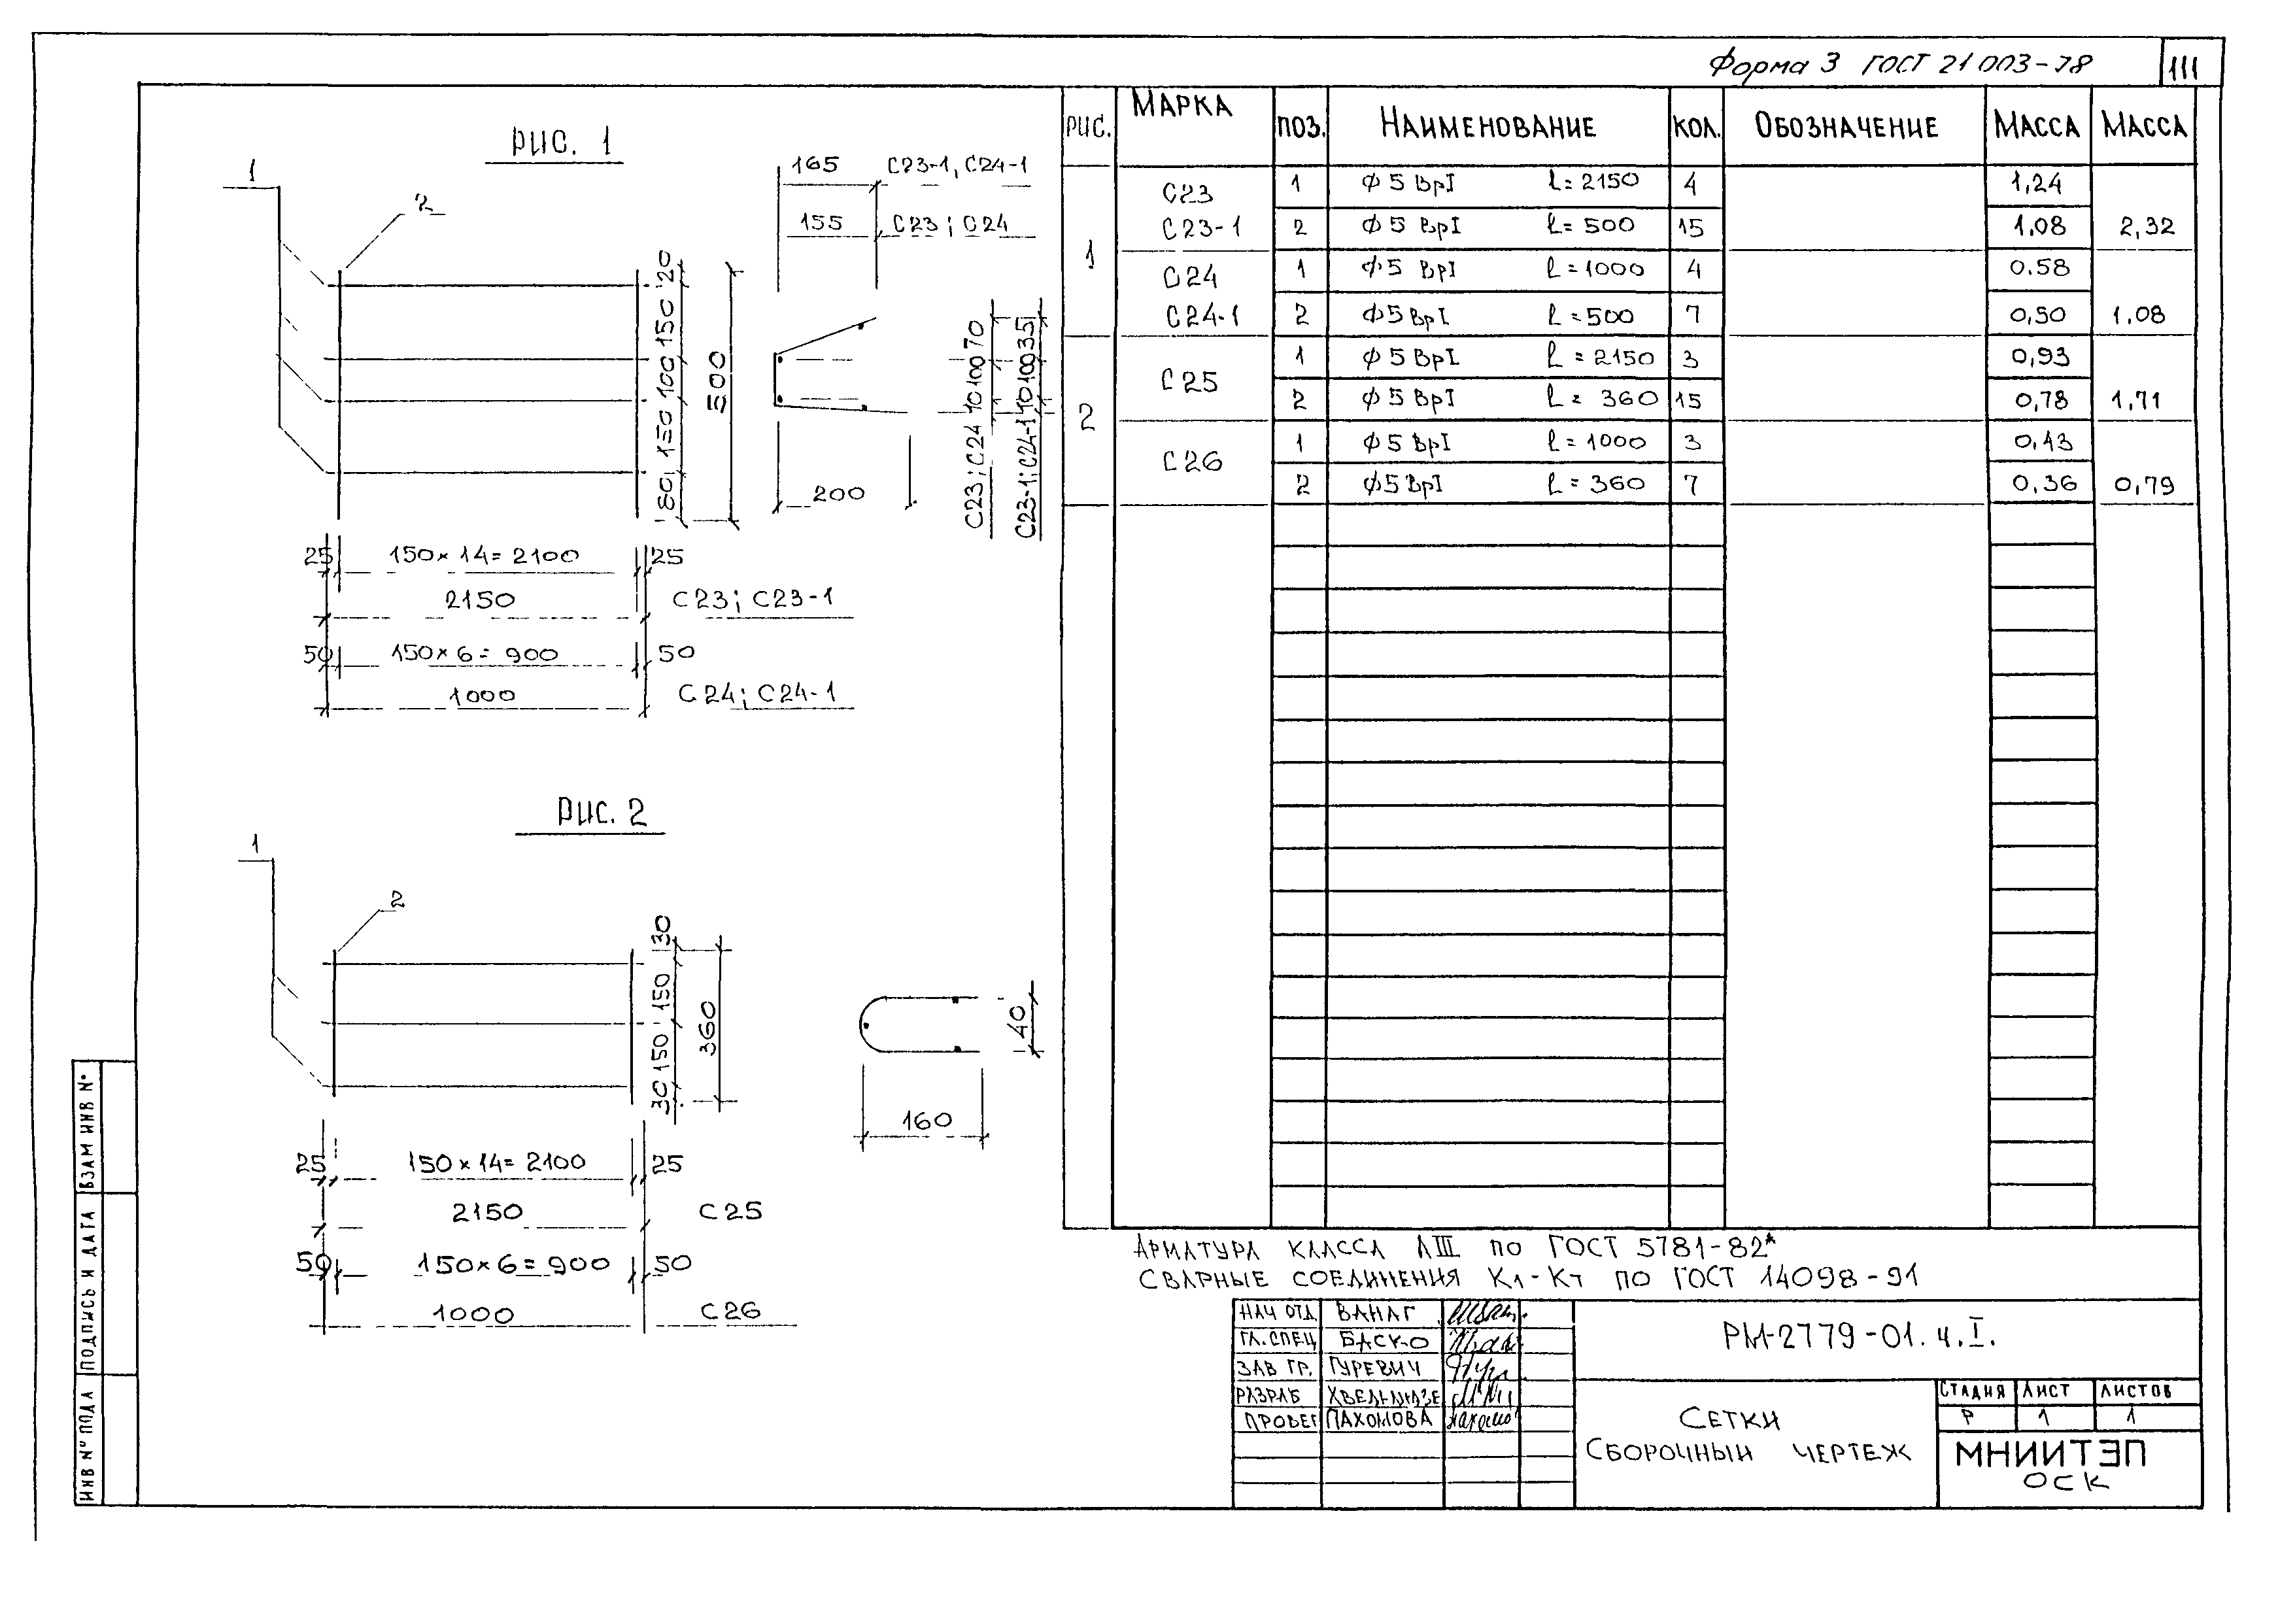 Форма 3 ГОСТ 21 003-78
111
РИС. 1
1
2
165 С23-1, С24-1
155 С23; С24
20
150
100
150
80
500
С23; С24 10 100 70
С23-1; С24-1 10 100 35
200
25 150×14=2100 25
2150 С23; С23-1
50 150×6=900 50
1000 С24; С24-1
РИС. 2
1
2
30
150
150
30
360
40
160
25 150×14=2100 25
2150 С25
50 150×6=900 50
1000 С26
РИС. МАРКА ПОЗ. НАИМЕНОВАНИЕ КОЛ. ОБОЗНАЧЕНИЕ МАССА МАССА
1
С23 1 Ф5 ВрI ℓ=2150 4 1,24
С23-1 2 Ф5 ВрI ℓ=500 15 1,08 2,32
С24 1 Ф5 ВрI ℓ=1000 4 0.58
С24-1 2 Ф5ВрI ℓ=500 7 0,50 1,08
2
С25
1 Ф5ВрI ℓ=2150 3 0,93
2 Ф5 ВрI ℓ=360 15 0,78 1,71
С26
1 Ф5 ВрI ℓ=1000 3 0,43
2 Ф5ВрI ℓ=360 7 0,36 0,79
АРМАТУРА КЛАССА АIII ПО ГОСТ 5781-82*
СВАРНЫЕ СОЕДИНЕНИЯ К1-Кт ПО ГОСТ 14098-91
НАЧ ОТД ВАНАГ
ГЛ.СПЕЦ
ЗАВ ГР. ГУРЕВИЧ
РАЗРАБ
ПРОВЕР ПАХОМОВА
РМ-2779-01. ч.I.
СЕТКИ
СБОРОЧНЫЙ ЧЕРТЕЖ
СТАДИЯ ЛИСТ ЛИСТОВ
Р 1 1
МНИИТЭП
ОСК
ВЗАМ ИНВ №
ПОДПИСЬ И ДАТА
ИНВ № ПОДЛ